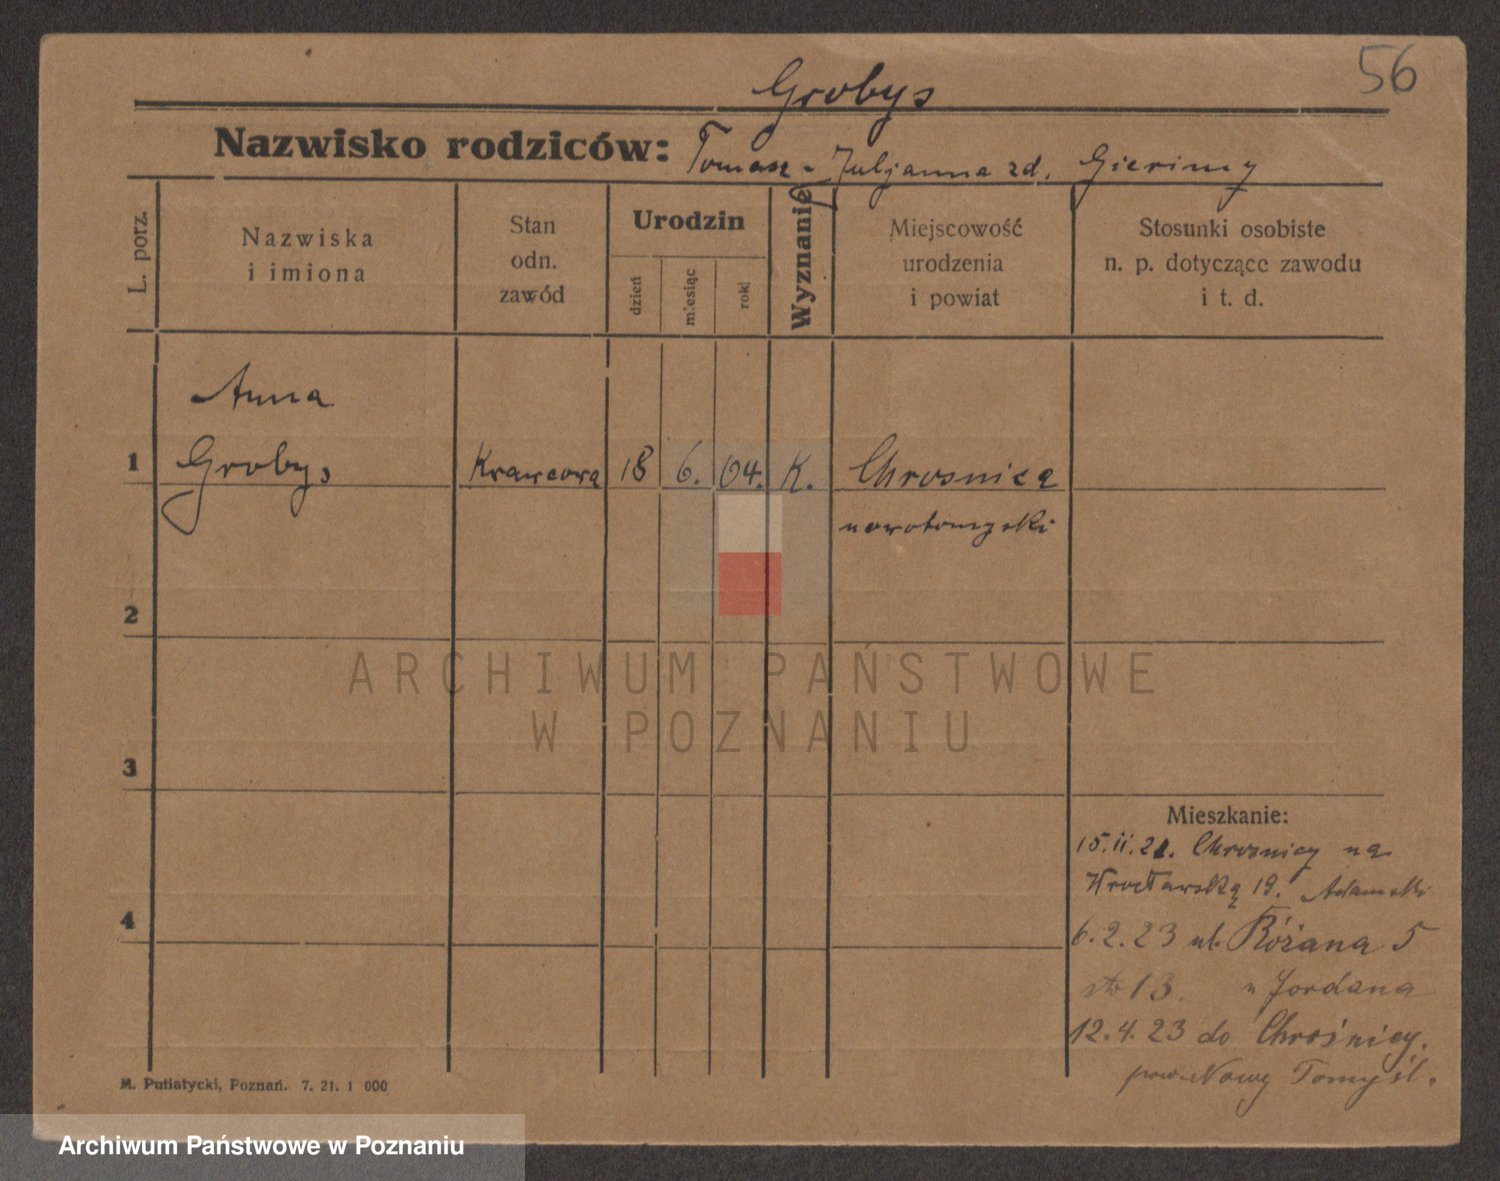 56
Grobys
Nazwisko rodziców: Tomasz - Juljanna zd. Gierimy
L. porz.
Nazwiska
i imiona
Stan
odn.
zawód
Urodzin
dzień
miesiąc
rok
Wyznanie
Miejscowość
urodzenia
i powiat
Stosunki osobiste
n. p. dotyczące zawodu
i t. d.
Anna
1 Grobys Krawcowa 18 6. 04. K. Chrosnica
nowotomyski
2
ARCHIWUM PAŃSTWOWE
W POZNANIU
3
Mieszkanie:
15.II.21. Chrosnicy na
Wrocławską 19. Adamski
4
6.2.23 ul. Różana 5
13. u Jordana
12.4.23 do Chrośnicy.
pow. Nowy Tomyśl.
M. Putiatycki, Poznań. 7. 21. 1 000
Archiwum Państwowe w Poznaniu